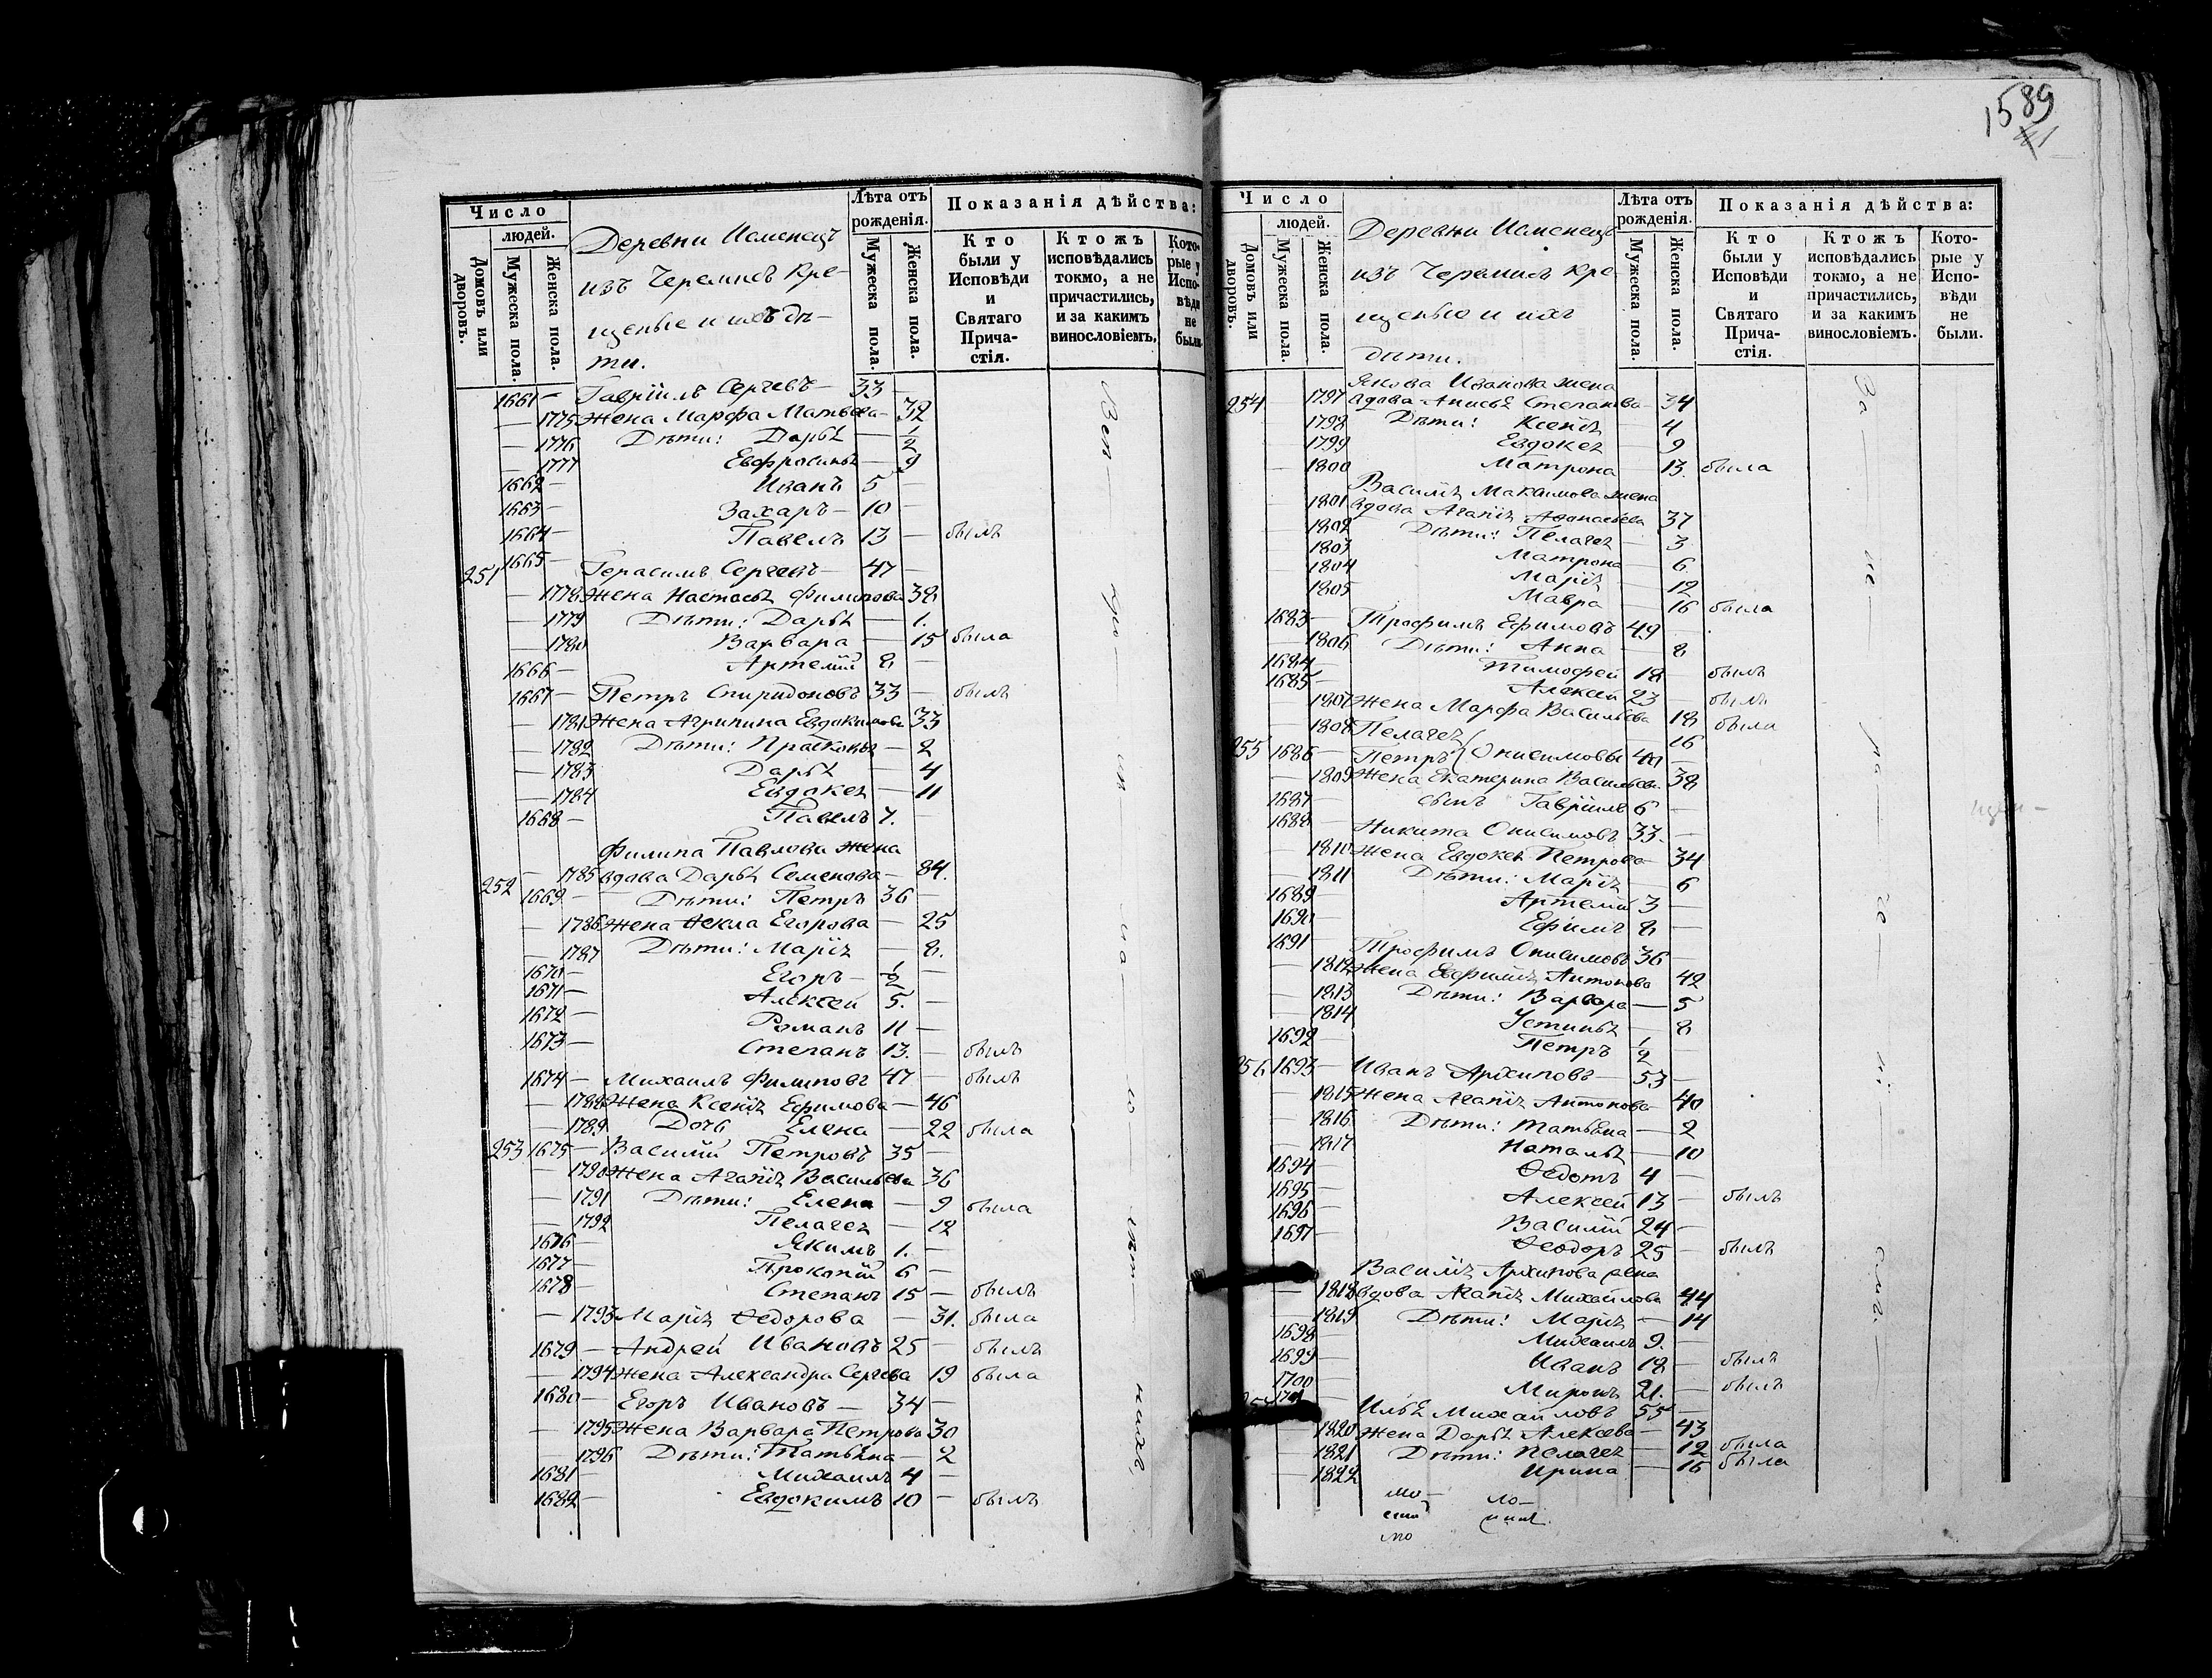 Число
людей.
Домовъ или дворовъ.
Мужеска пола.
Женска пола.
Деревни
изъ Черемисъ кре-
щеные и ихъ дѣ-
ти.
Лѣта отъ рожденія.
Мужеска пола.
Женска пола.
Показанія дѣйства:
Кто были у Исповѣди и Святаго Прича-стія.
Ктожъ исповѣдались токмо, а не причастились, и за какимъ винословіемъ.
Кото-рые у Испо-вѣди не были.
1661 — Гавріилъ Сергѣевъ — 33 —
— 1775 Жена Марфа Матвѣева — 32
— 1776 Дѣти: Дарья — 1/2
— 1777 Евфросинья — 9
1662 — Иванъ 5 —
1663 — Захаръ — 10 —
1664 — Павелъ 13 — былъ
251 1665 — Герасимъ Сергѣевъ — 47 —
— 1778 Жена Настасья Филипова 38
— 1779 Дѣти: Дарья — 1.
— 1780 Варвара — 15 была
1666 — Артемій 8 —
1667 — Петръ Спиридоновъ 33 — былъ
— 1781 Жена Агрипина Евдокимова 33
— 1782 Дѣти: Прасковья — 2
— 1783 Дарья — 4
— 1784 Евдокея — 11
1668 — Павелъ 7. —
Филипа Павлова жена
— 1785 вдова Дарья Семенова — 84.
252 1669 — Дѣти: Петръ 36 —
— 1786 Жена Ѳекла Егорова — 25
— 1787 Дѣти: Марія — 8.
1670 — Егоръ — 1/2 —
1671 — Алексей 5. —
1672 — Романъ 11 —
1673 — Степанъ 13. — былъ
1674 — Михаилъ Филиповъ 47 — былъ
— 1788 Жена Ксенія Ефимова — 46
— 1789 Дочь Елена — 22 была
253 1675 — Василій Петровъ 35 —
— 1790 Жена Агапія Васильева 36
— 1791 Дѣти: Елена — 9 была
— 1792 Пелагея — 12
1676 — Якимъ 1. —
1677 — Прокопій 6 —
1678 — Степанъ 15 — былъ
— 1793 Марія Ѳедорова — 31. была
1679 — Андрей Ивановъ 25 — былъ
— 1794 Жена Александра Сергѣева 19 была
1680 — Егоръ Ивановъ — 34 —
— 1795 Жена Варвара Петрова 30
— 1796 Дѣти: Татьяна — 2
1681 — Михаилъ 4 —
1682 — Евдокимъ 10 — былъ
1589
Число
людей.
Домовъ или дворовъ.
Мужеска пола.
Женска пола.
Деревни
изъ Черемисъ кре-
щеные и ихъ
дѣти.
Лѣта отъ рожденія.
Мужеска пола.
Женска пола.
Показанія дѣйства:
Кто были у Исповѣди и Святаго Прича-стія.
Ктожъ исповѣдались токмо, а не причастились, и за какимъ винословіемъ.
Кото-рые у Испо-вѣди не были.
Якова Иванова жена
254 1797 вдова Анисья Степанова — 34
1798 Дѣти: Ксенія — 4
1799 Евдокея 9
— 1800 Матрона — 13. была
Василія Максимова жена
1801 вдова Агапія Афонасьева 37
1802 Дѣти: Пелагея — 3
1803 Матрона — 6
1804 Марія 12
1805 Мавра — 16 была
1683 — Трофимъ Ефимовъ 49
— 1806 Дѣти: Анна — 8
1684 — Тимофей 18 — былъ
1685 — Алексей 23 былъ
1807 Жена Марфа Васильева 18 была
1808 Пелагея — 16
255 1686 — Петръ } Онисимовы 40 —
— 1809 Жена Екатерина Васильева 38
1687 — сынъ Гавріилъ 6 —
1688 — Никита Онисимовъ 33. —
— 1810 Жена Евдокея Петрова — 34
— 1811 Дѣти: Марія — 6
1689 — Артемій 3 —
1690 — Ефимъ 8 —
1691 — Трофимъ Онисимовъ 36 —
— 1812 Жена Антонова 42
— 1813 Дѣти: Варвара — 5
— 1814 Устинья — 8
1692 — Петръ 1/2
256 1693 — Иванъ Архиповъ — 53 —
— 1815 Жена Агапія Антонова — 40
— 1816 Дѣти: Татьяна — 2
— 1817 Наталья — 10
1694 — Ѳедотъ 4 —
1695 — Алексей 13 — былъ
1696 — Василій 24 —
1697 — Ѳеодоръ 25 — былъ
Василія Архипова жена
— 1818 вдова Агапія Михайлова 44
— 1819 Дѣти: Марія — 14
1698 — Михаилъ 9. —
1699 — Иванъ 18 — былъ
1700 Миронъ 21. — былъ
1701 — Илья Михайловъ 55 —
— 1820 Жена Дарья Алексѣева — 43
— 1821 Дѣти: Пелагея — 12 была
— 1822 Ирина — 15 была